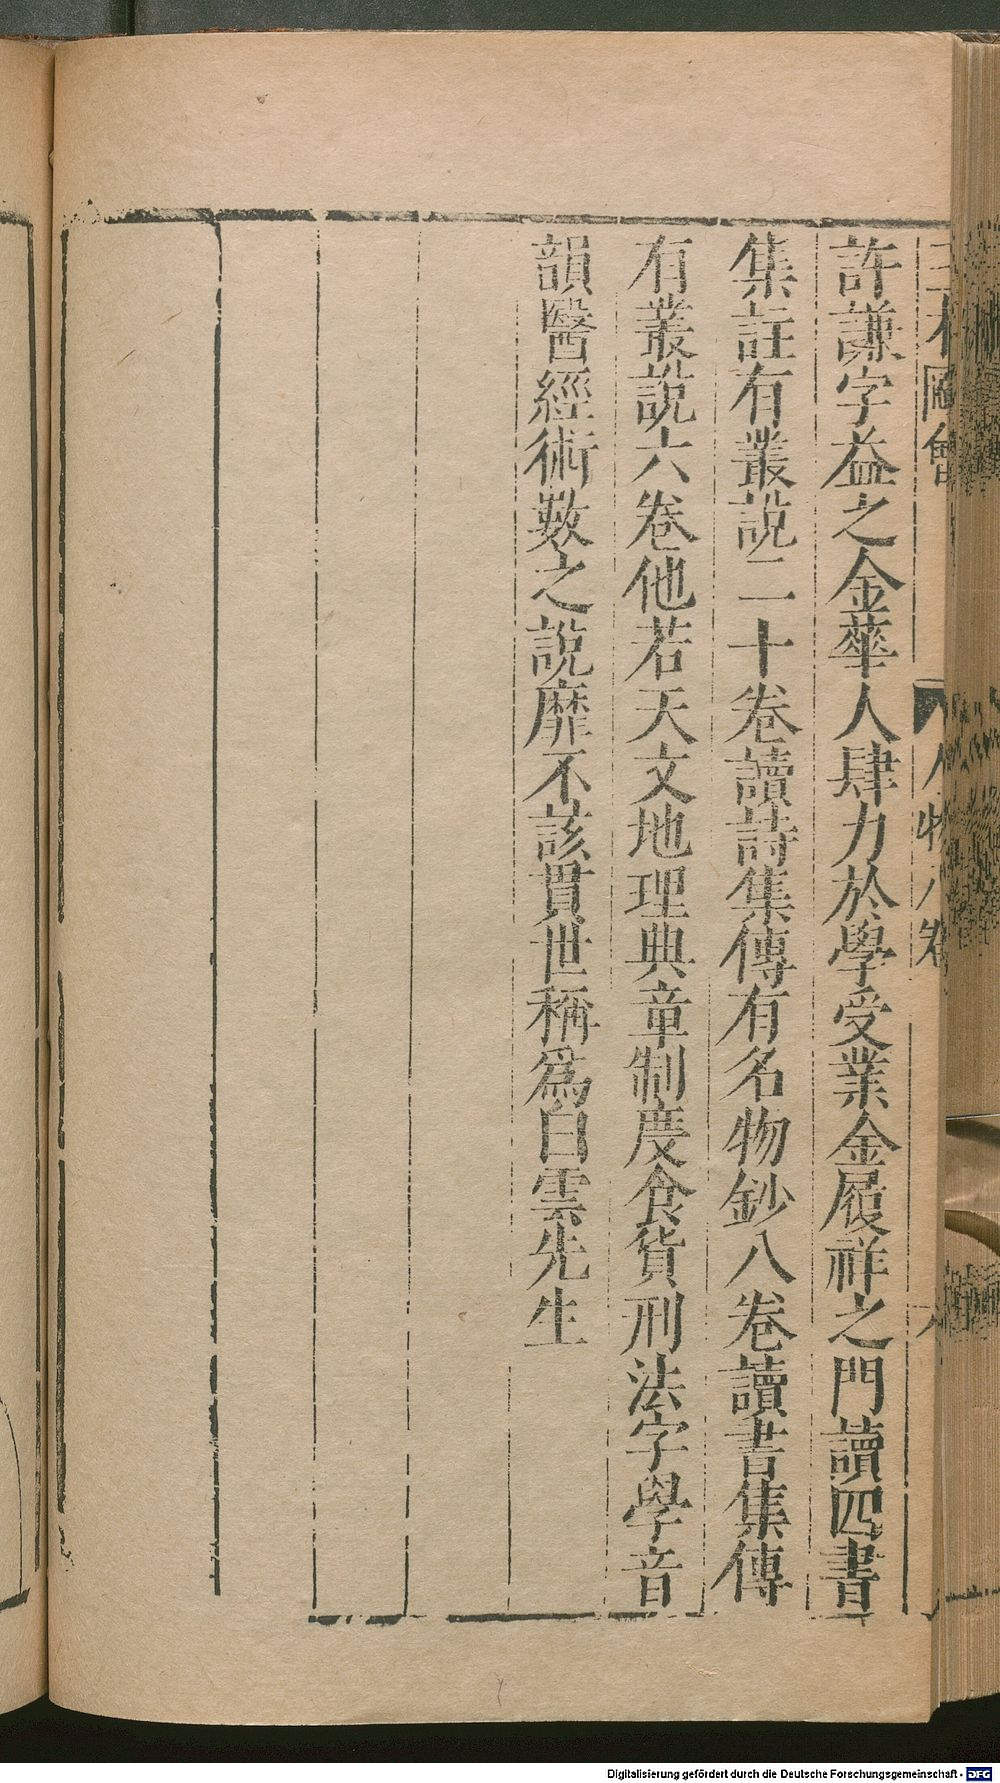 許謙字益之金華人肆力於學受業金履祥之門讀四書
集註有叢說二十卷讀詩集傳有名物鈔八卷讀書集傳
有叢說六卷他若天文地理典章制度食貨刑法字學音
韻醫經術數之說靡不該貫世稱爲白雲先生
人物八卷
Digitalisierung gefördert durch die Deutsche Forschungsgemeinschaft - DFG